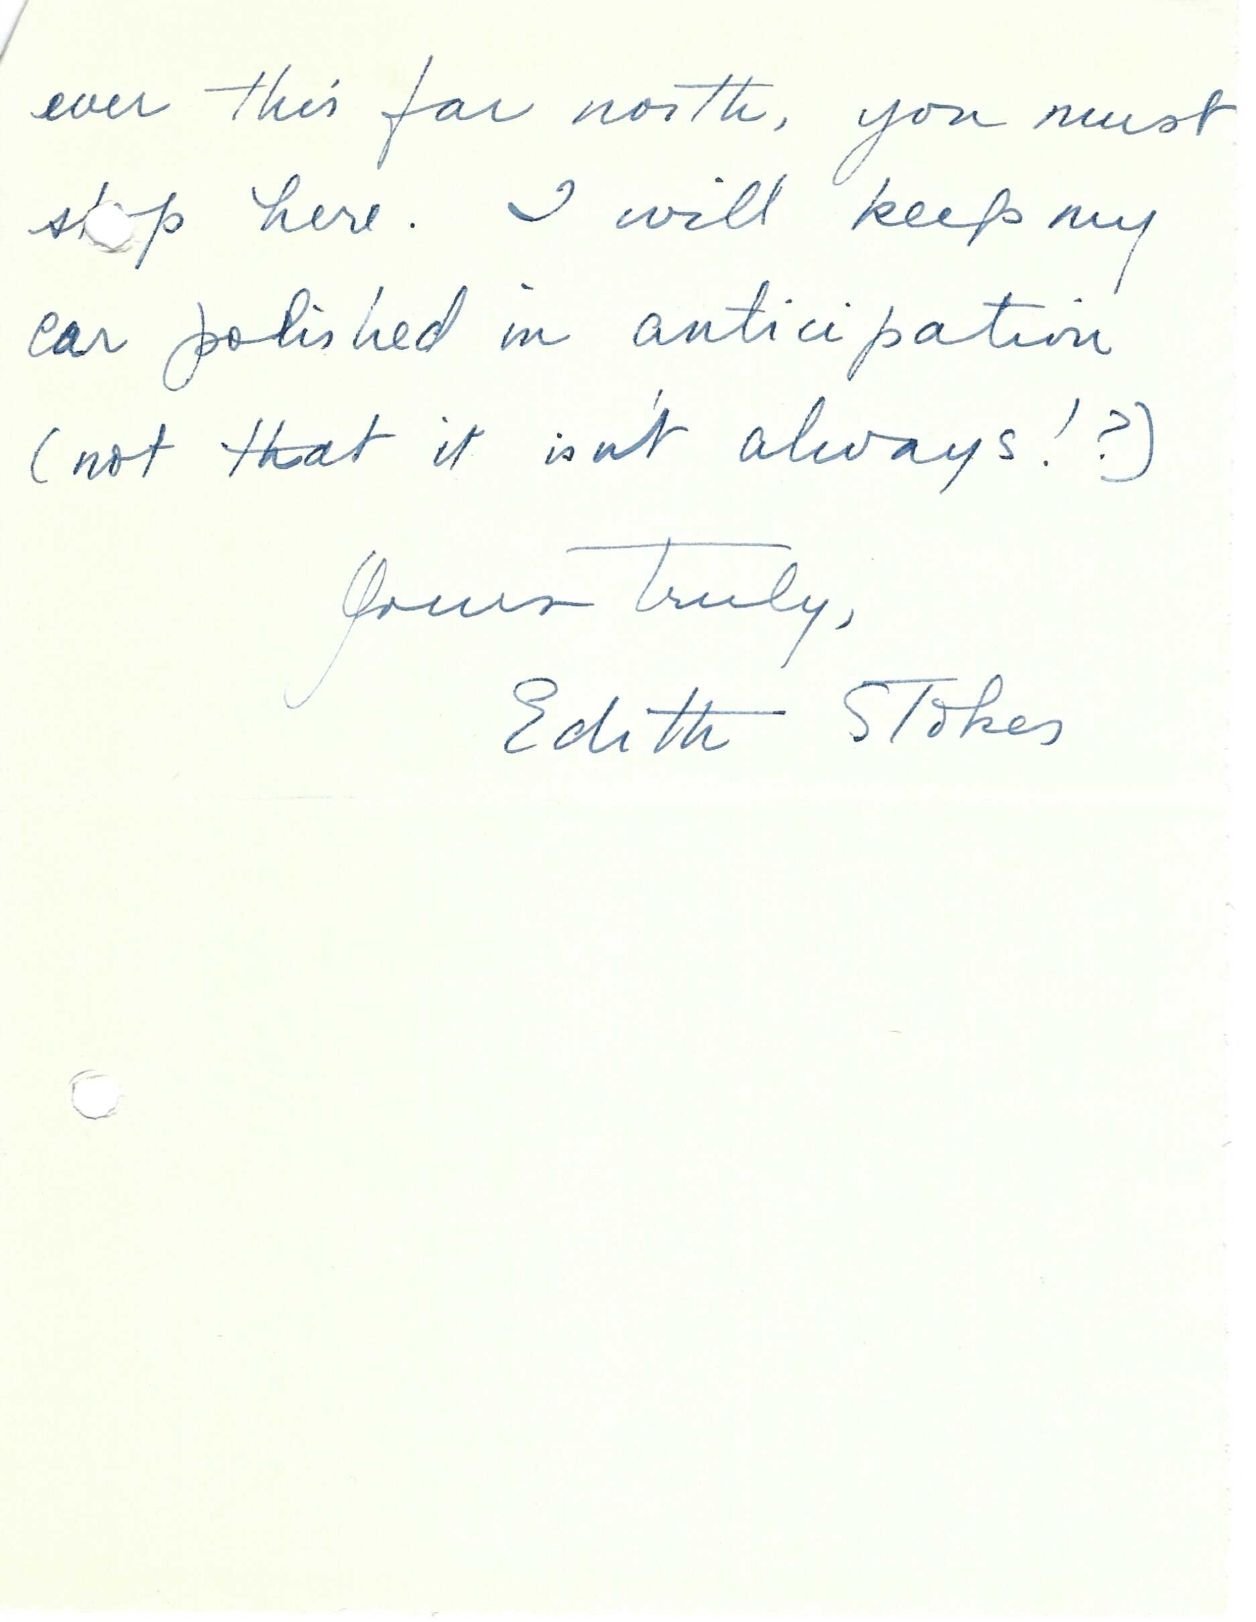 ever this far north, you must
stop here. I will keep my
car polished in anticipation
(not that it isn't always!?)
Yours Truly,
Edith Stokes